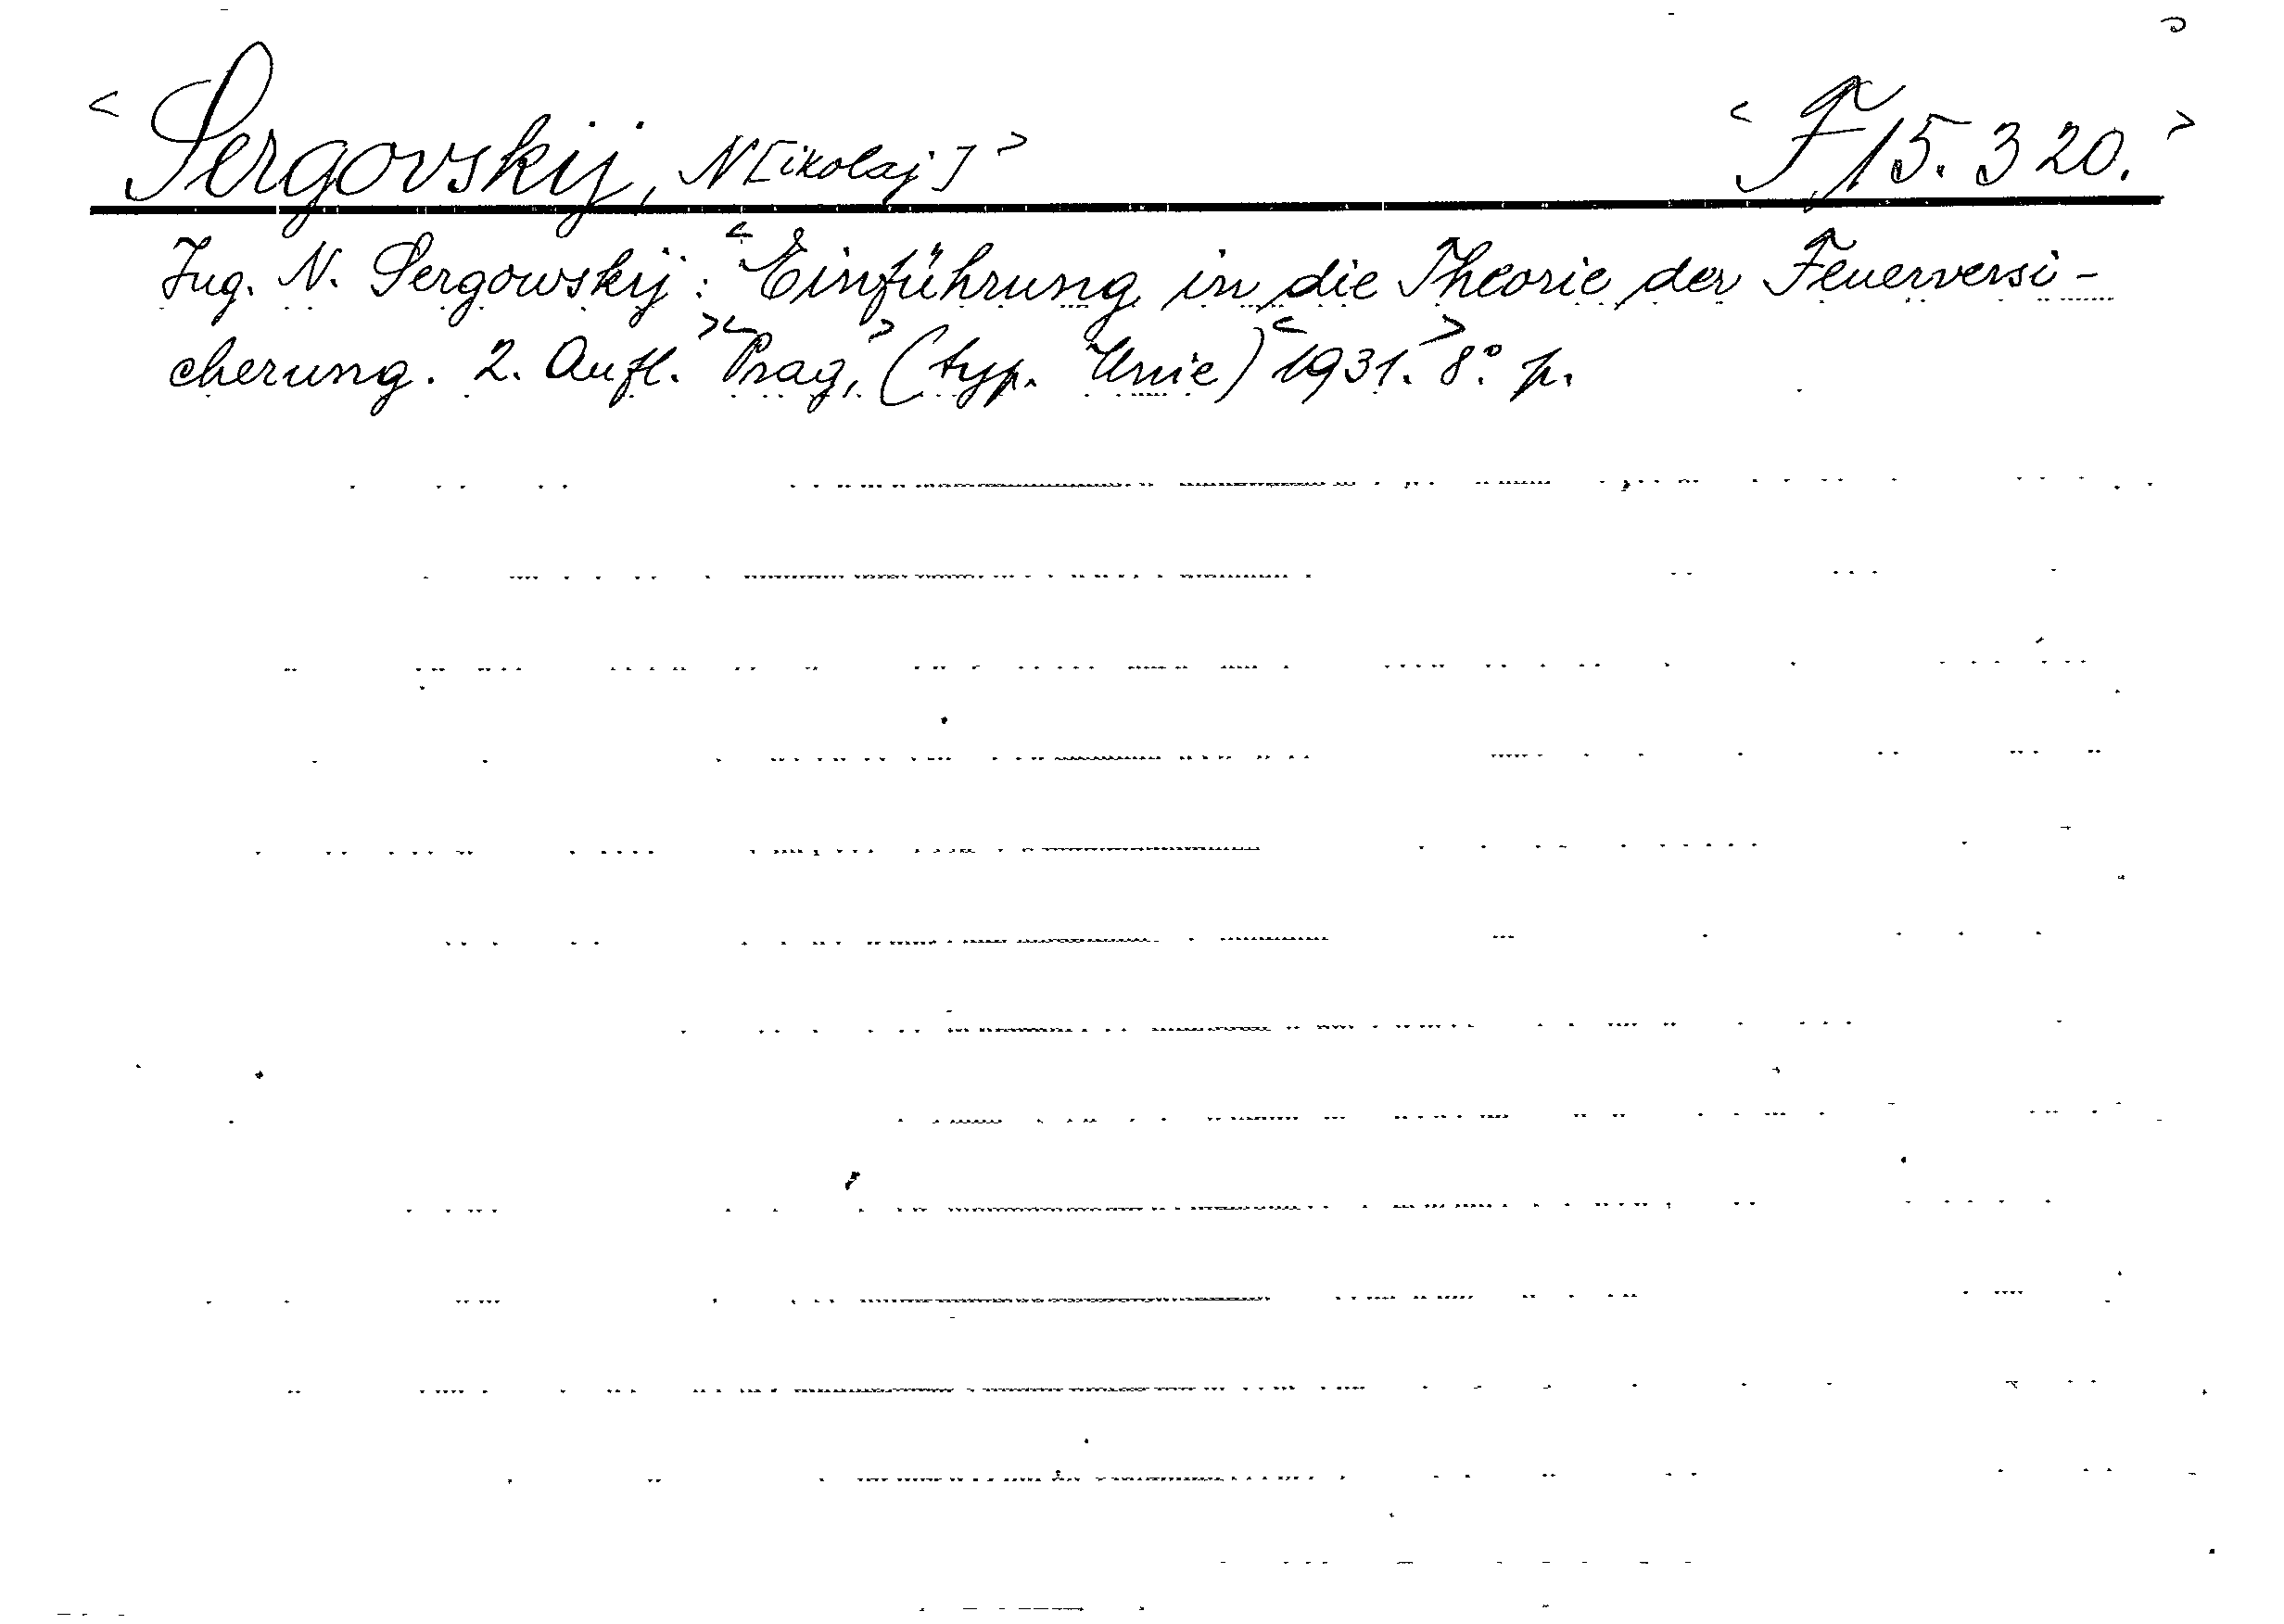 <Sergovskij, N[ikolaj]> <F 15.320.>
Ing. N. Sergowskij: <Einführung in die Theorie der Feuerversi-
cherung. 2. Aufl.> <Prag,> (typ. Unie) <1931.> 8° p.